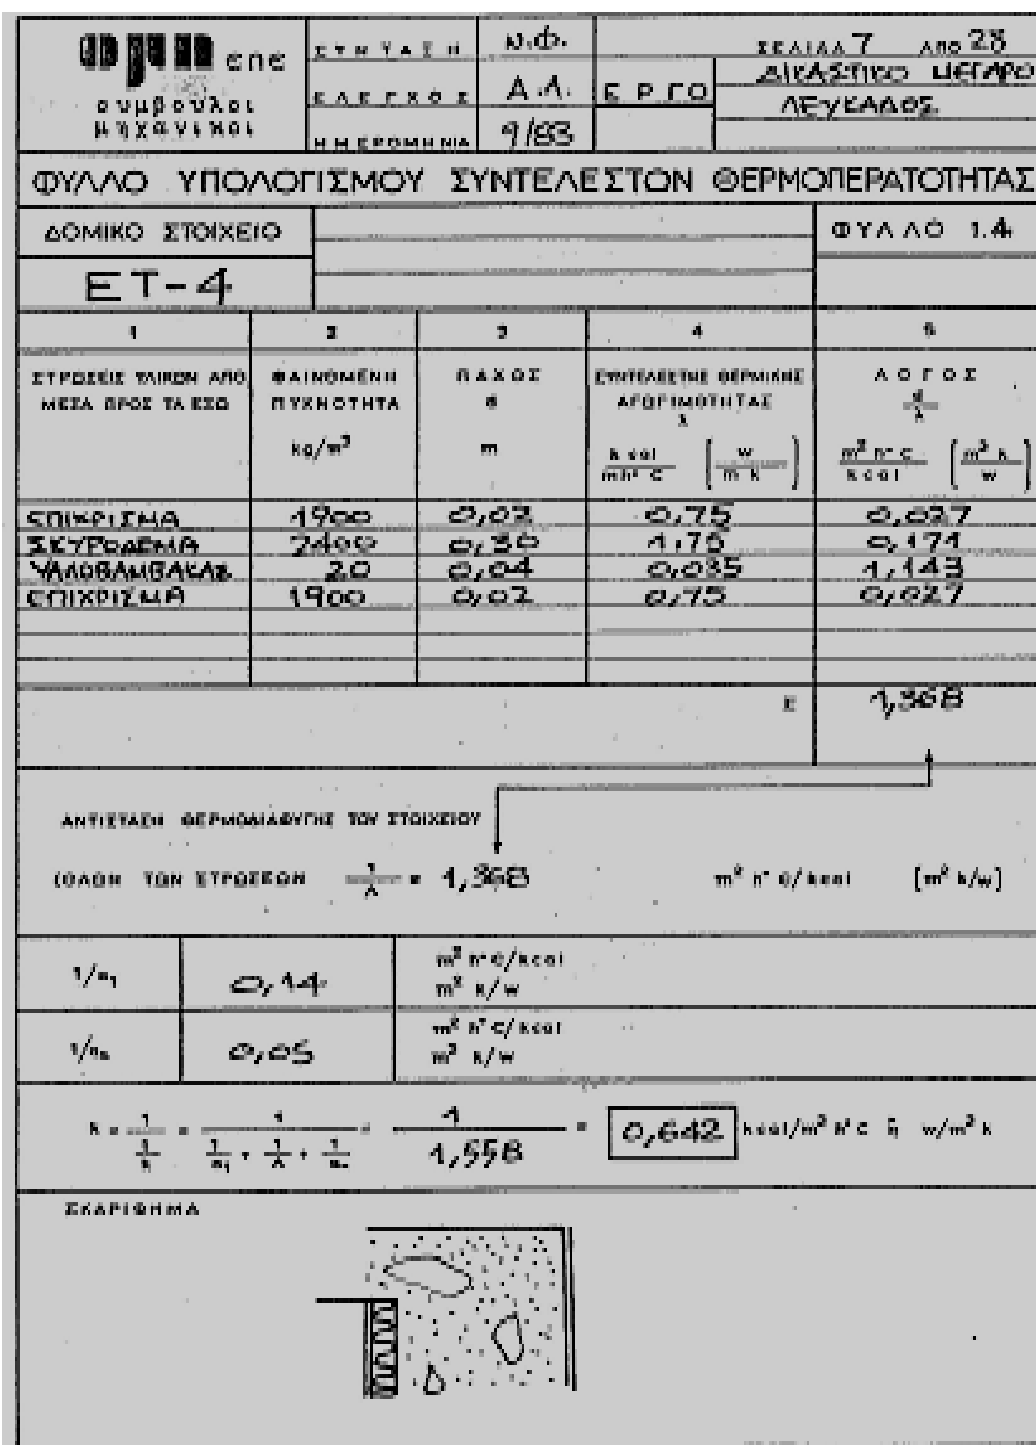 επε
σύμβουλοι
μηχανικοί
ΣΥΝΤΑΞΗ Ν.Φ.
ΕΛΕΓΧΟΣ Α.Λ.
ΗΜΕΡΟΜΗΝΙΑ 9/83
ΕΡΓΟ
ΣΕΛΙΔΑ 7 ΑΠΟ 23
ΔΙΚΑΣΤΙΚΟ ΜΕΓΑΡΟ
ΛΕΥΚΑΔΟΣ
ΦΥΛΛΟ ΥΠΟΛΟΓΙΣΜΟΥ ΣΥΝΤΕΛΕΣΤΩΝ ΘΕΡΜΟΠΕΡΑΤΟΤΗΤΑΣ
ΔΟΜΙΚΟ ΣΤΟΙΧΕΙΟ ΦΥΛΛΟ 1.4
ΕΤ-4
1 2 3 4 5
ΣΤΡΩΣΕΙΣ ΥΛΙΚΩΝ ΑΠΟ ΦΑΙΝΟΜΕΝΗ ΠΑΧΟΣ ΣΥΝΤΕΛΕΣΤΗΣ ΘΕΡΜΙΚΗΣ ΛΟΓΟΣ
ΜΕΣΑ ΠΡΟΣ ΤΑ ΕΞΩ ΠΥΚΝΟΤΗΤΑ d ΑΓΩΓΙΜΟΤΗΤΑΣ λ d/λ
kg/m³ m kcal/mh°C (w/m k) m² h° C/kcal (m² k/w)
ΕΠΙΧΡΙΣΜΑ 1900 0,02 0,75 0,027
ΣΚΥΡΟΔΕΜΑ 2400 0,30 1,75 0,171
ΥΑΛΟΒΑΜΒΑΚΑΣ 20 0,04 0,035 1,143
ΕΠΙΧΡΙΣΜΑ 1900 0,02 0,75 0,027
Σ 1,368
ΑΝΤΙΣΤΑΣΗ ΘΕΡΜΟΔΙΑΦΥΓΗΣ ΤΟΥ ΣΤΟΙΧΕΙΟΥ
(ΟΛΩΝ ΤΩΝ ΣΤΡΩΣΕΩΝ 1/Λ = 1,368 m² h° C/kcal (m² k/w)
1/α₁ 0,14 m² h° C/kcal
m² k/w
0,05 m² h° C/kcal
m² k/w
k = 1/1/k = 1/1/α₁ + 1/Λ + 1/αₐ = 1/1,558 = 0,642 kcal/m² h° C ή w/m² k
ΣΚΑΡΙΦΗΜΑ